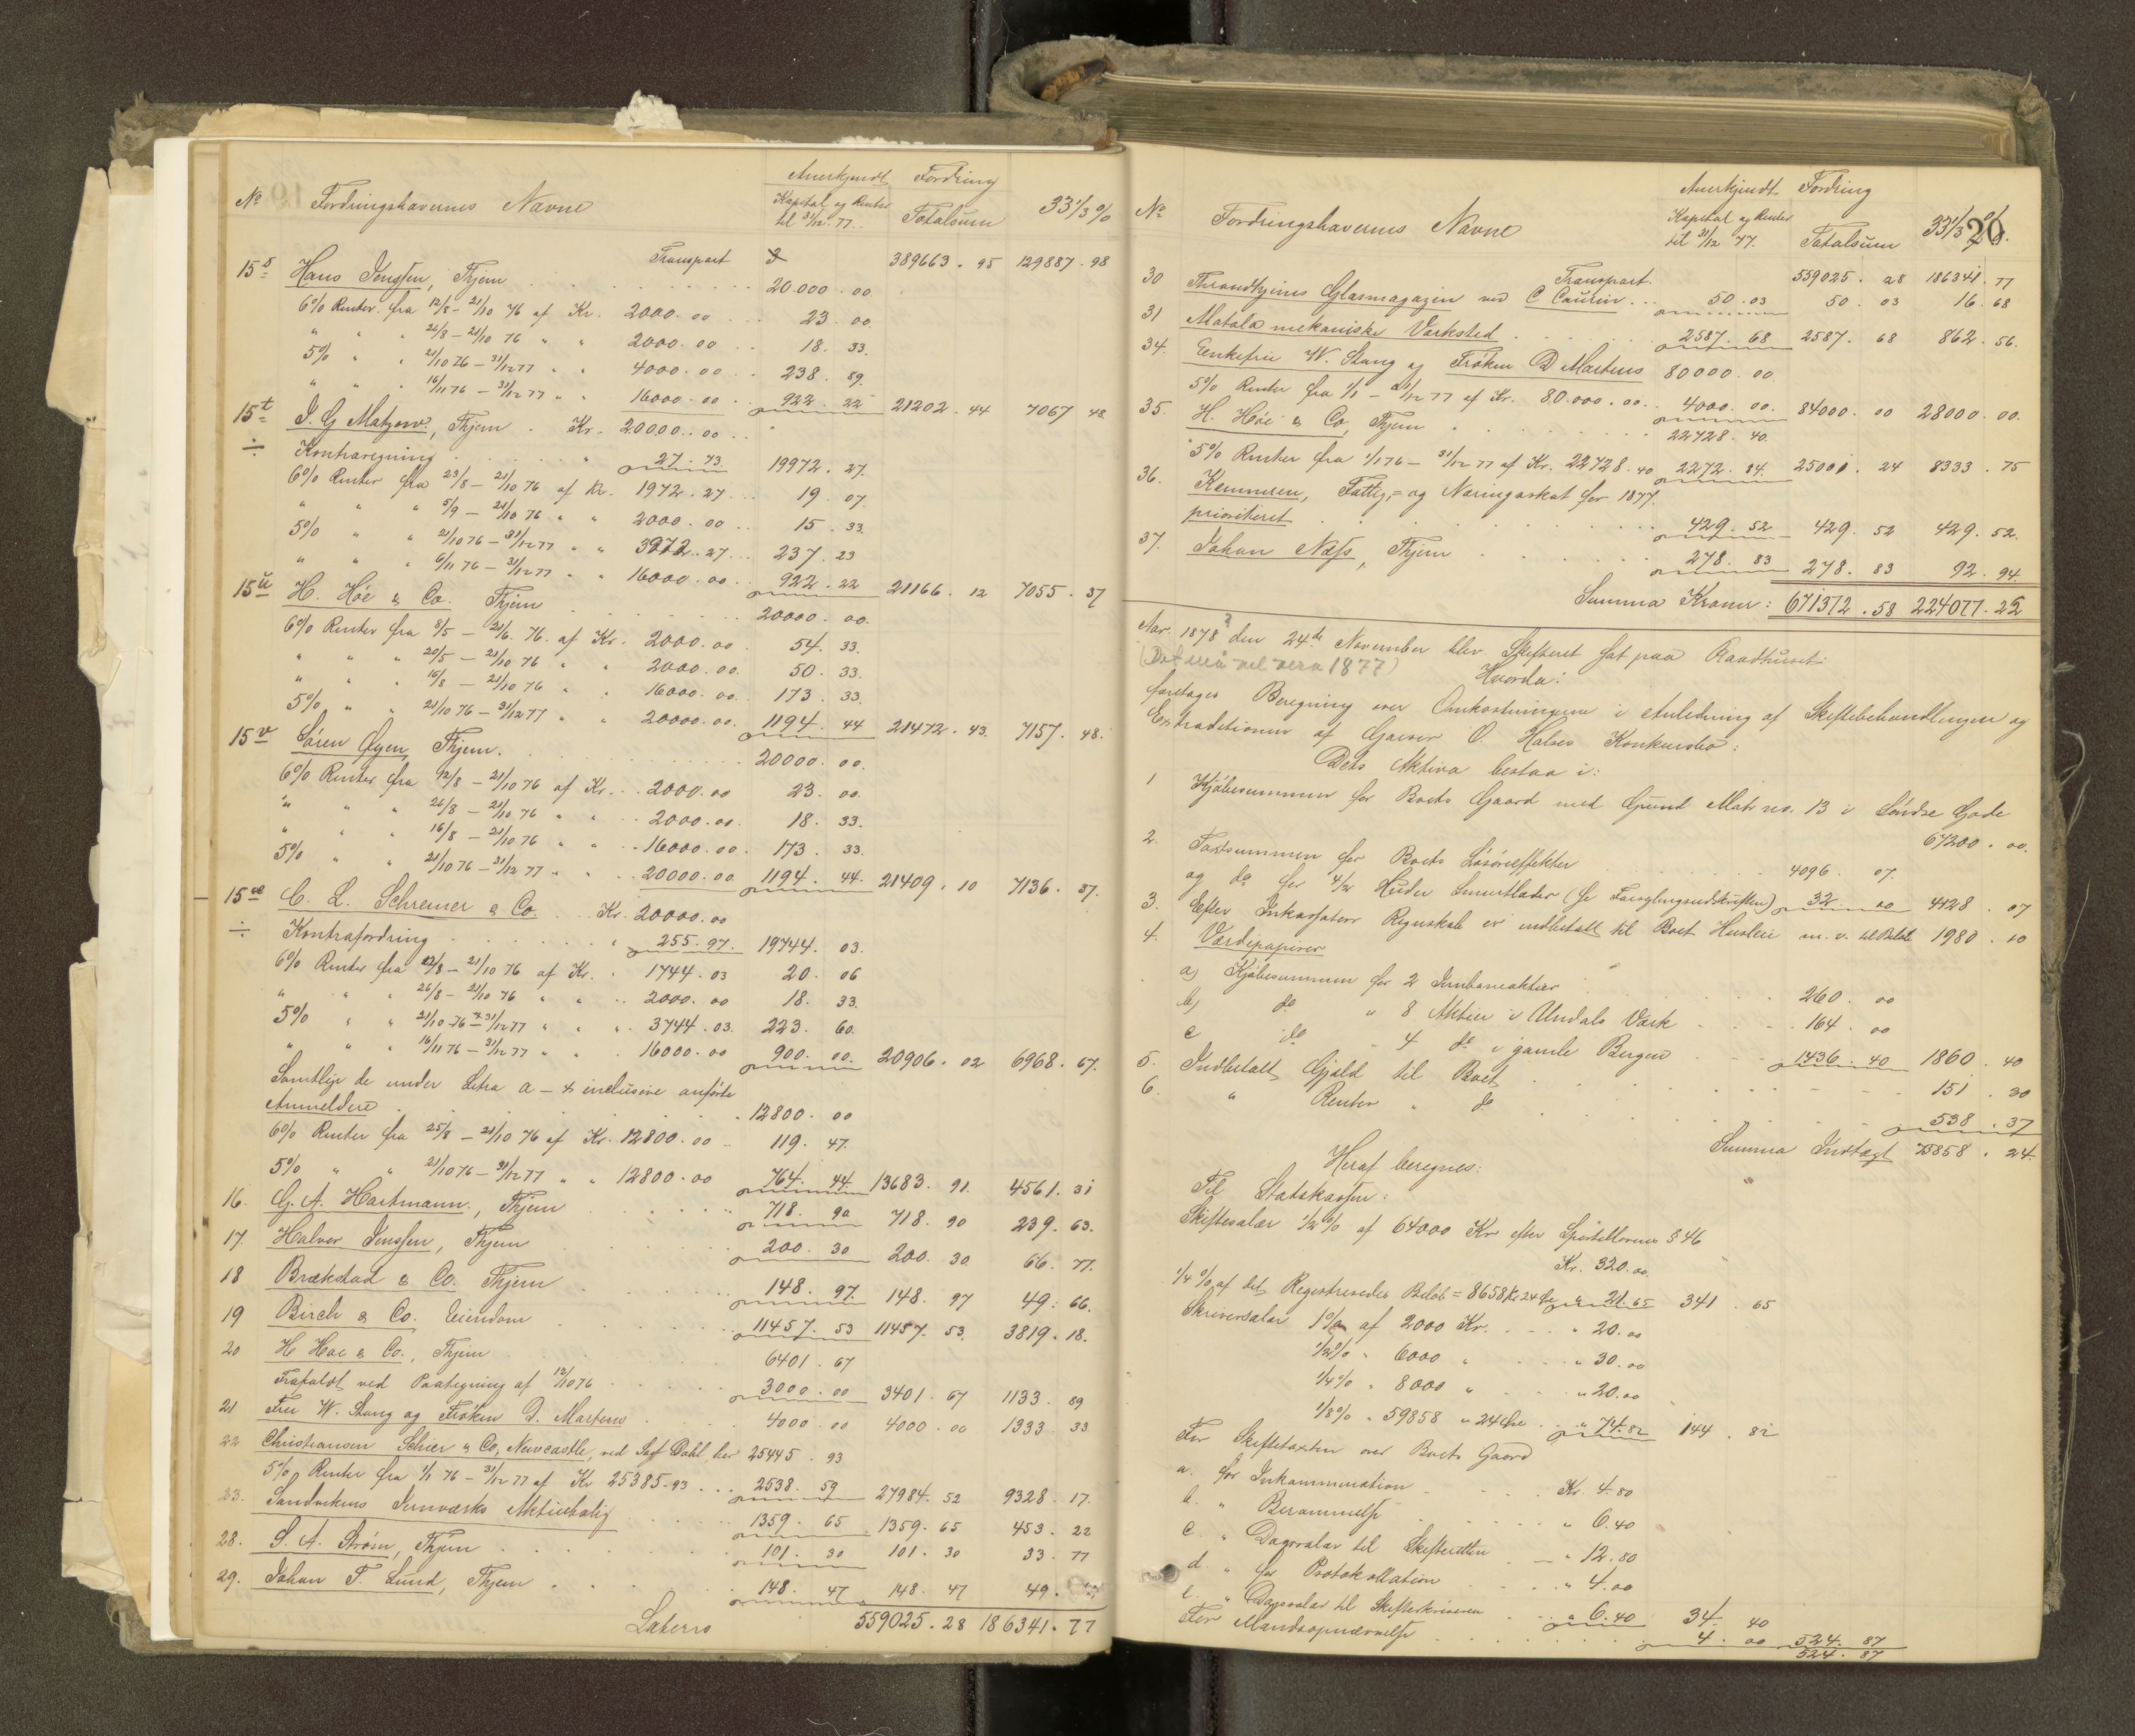 Anerkjendt Fordring
No Fordringshavernes Navne Kapital og Renter til 31/12 77. Totalsum 33 1/3 %
Transport 389663. 95 129887. 98
15s Hans Jenssen, Thjem 20.000. 00
6% Renter fra 12/8 - 21/10 76 af Kr. 2000. 00 23. 00.
" " " 26/8 - 21/10 76 " " 2000. 00 18. 33.
5% " " 21/10 76 - 31/12 77 " " 4000. 00 238. 89.
" " " 16/11 76 - 31/12 77 " " 16000. 00 922. 22 21202. 44 7067 48
15t I. G. Matzow, Thjem. Kr. 20000. 00
÷ Kontraregning " 27. 73. 19972. 27.
6% Renter fra 23/8 - 21/10 76 af Kr. 1972. 27 19. 07.
" " " 5/9 - 21/10 76 " " 2000. 00 15. 33.
5% " " 21/10 76 - 31/12 77 " " 3972. 27 237. 23
" " " 6/11 76 - 31/12 77 " " 16000. 00 922. 22 21166. 12 7055. 37
15u H. Höe & Co. Thjem 20000. 00.
6% Renter fra 8/5 - 21/6. 76. af Kr. 2000. 00 54. 33.
" " " 20/5 - 21/10 76 " " 2000. 00. 50. 33.
" " " 16/8 - 21/10 76 " " 16000. 00. 173. 33.
5% " " 21/10 76 - 31/12 77 " " 20000. 00. 1194. 44 21472. 43. 7157. 48.
15v Sören Øyen, Thjem. 20000. 00.
6% Renter fra 12/8 - 21/10 76 af Kr. 2000. 00 23. 00.
" " " 26/8 - 21/10 76 " " 2000. 00. 18. 33.
" " " 16/8 - 21/10 76 " " 16000. 00. 173. 33.
5% " " 21/10 76 - 31/12 77 " " 20000. 00 1194. 44. 21409. 10 7136. 37.
15x C. L. Schreiner & Co. Kr. 20000. 00
÷ Kontrafordring " 255. 97. 19744. 03.
6% Renter fra 12/8 - 21/10 76 af Kr. 1744. 03 20. 06
" " " 26/8 - 21/10 76 " " 2000. 00 18. 33.
5% " " 21/10 76 - 31/12 77 " " 3744. 03. 223. 60.
" " " 16/11 76 - 31/12 77 " " 16000. 00 900. 00. 20906. 02 6968. 67.
Samtlige de under Litra a - x inclusive anförte
Anmeldere 12800. 00
6% Renter fra 25/8 - 21/10 76 af Kr. 12800. 00 119. 47.
5% " " 21/10 76 - 31/12 77 " " 12800. 00 764. 44. 13683. 91. 4561. 31
16. G. A. Hartmann, Thjem 718. 90 718. 90 239. 63.
17. Halvor Jenssen, Thjem 200. 30 200. 30 66. 77.
18 Brækstad & Co. Thjem 148. 97 148. 97 49. 66.
19 Birch & Co. Eiendom 11457. 53 11457. 53. 3819. 18.
20 H Höe & Co., Thjem 6401. 67
Frafaldt ved Paategning af 12/10 76 3000. 00 3401. 67 1133. 89
21 Fru W. Stang og Fröken D. Martens 4000. 00 4000. 00 1333. 33
22 Christiansen Schier & Co, Newcastle, ved Sagf Dahl, her 25445. 93
5% Renter fra 1/1 76 - 31/12 77 af Kr 25385. 93 2538. 59 27984. 52 9328. 17.
23. Sandvikens Jernværks Aktiebolag 1359. 65 1359. 65 453. 22
28. S. A. Ström, Thjem 101. 30 101. 30 33. 77
29. Johan F. Lund, Thjem 148. 47 148. 47 49.
Lateris 559025. 28 186341. 77
20
Anerkjendt Fordring
No Fordringshavernes Navne Kapital og Renter til 31/12 77. Totalsum 33 1/3 %.
Transport. 559025. 28 186341. 77
30 Throndhjems Glasmagazin ved C Caurin 50. 03 50. 03 16. 68
31 Matala mekaniske Værksted 2587. 68 2587. 68 862. 56.
34. Enkefru W. Stang og Fröken D Martens 80000. 00.
5% Renter fra 1/1 - 31/12 77 af Kr. 80.000. 00. 4000. 00. 84000. 00 28000. 00.
35. H. Höe & Co, Thjem 22728. 40.
5% Renter fra 1/1 76 - 31/12 77 af Kr. 22728. 40 2272. 84. 25001. 24 8333. 75
36. Kemneren, Fattig- og Næringsskat for 1877.
prioriteret 429. 52 429. 52 429. 52.
37. Johan Næss, Thjem 278. 83 278. 83 92. 94
Summa Kroner: 671372. 58 224077. 22
Aar 1878? den 24de November blev Skifteret sat paa Raadhuset.
(Det må vel være 1877)
Hvorda:
foretages Beregning over Omkostningerne i Anledning af Skiftebehandlingen og
Extraditionen af Garver O. Halses Konkursbo:
Dets Aktiva bestaa i:
1 Kjöbesummen for Boets Gaard med Grund Matr no. 13 i Söndre Gade
67200. 00.
2. Taxtsummen for Boets Lösöreeffekter 4096. 07.
og do for 4/2 Huder Smurtlæder (se Forseglingsudskriften) 32. 00 4128. 07
3. Efter Inkassators Regnskab er indbetalt til Boet Husleie m. v. til Beløb 1980. 10
4. Værdipapirer
a) Kjöbesummen for 2 Jernbaneaktier 260. 00
b) do " 8 Aktier i Undals Værk 164. 00
c do - 4 do i gamle Bergen 1436. 40 1860. 40
5. Indbetalt Gjæld til Boet 151. 30
6. " Renter " do 538. 37
Summa Indtægt 75858. 24.
Heraf beregnes:
Til Statskassen:
Skiftesalær 1/2% af 64000 Kr efter Sportellovens § 46
Kr. 320. 00
1/4 % af det Registreredes Beløb = 8658 Kr 24 Øre " 21. 65 341. 65
Skriversalær 1% af 2000 Kr. " 20. 00
1/2% " 6000 " " 30. 00
1/4% " 8000 " " 20. 00
1/8% " 59858 " 24 Øre " 74. 82 144. 82
For Skiftetaxten over Boets Gaard
a. for Inkammination Kr. 4. 80
b. " Berammelse " 6. 40
c. " Dagsalær til Skifteretten " 12. 80
d. " for Protokollation " 4. 00
e. " Dagsalær til Skifteskriveren " 6. 40 34. 40
For Mandsopnævnelse 4. 00 524. 87
524. 87